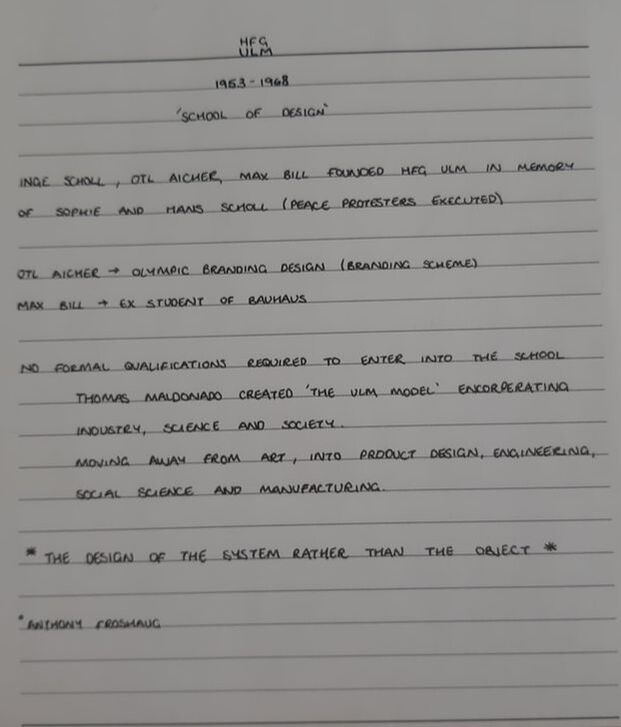 HFG
ULM
1953-1968
'SCHOOL OF DESIGN'
INGE SCHOLL, OTL AICHER, MAX BILL FOUNDED HFG ULM IN MEMORY
OF SOPHIE AND HANS SCHOLL (PEACE PROTESTERS EXECUTED)
OTL AICHER → OLYMPIC BRANDING DESIGN (BRANDING SCHEME)
MAX BILL → EX STUDENT OF BAUHAUS
NO FORMAL QUALIFICATIONS REQUIRED TO ENTER INTO THE SCHOOL
THOMAS MALDONADO CREATED 'THE ULM MODEL' ENCORPERATING
INDUSTRY, SCIENCE AND SOCIETY.
MOVING AWAY FROM ART, INTO PRODUCT DESIGN, ENGINEERING,
SOCIAL SCIENCE AND MANUFACTURING.
* THE DESIGN OF THE SYSTEM RATHER THAN THE OBJECT *
*ANTHONY FROSHAUG